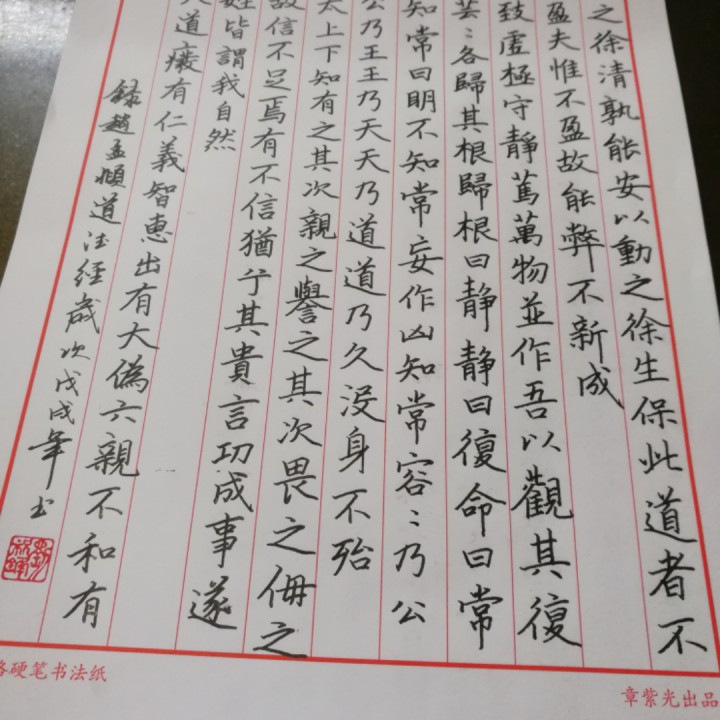 之徐清孰能安以動之徐生保此道者不
盈夫惟不盈故能弊不新成
致虛極守静篤萬物並作吾以觀其復
芸〻各歸其根歸根曰静静曰復命曰常
知常曰明不知常妄作凶知常容〻乃公
公乃王王乃天天乃道道乃久没身不殆
太上下知有之其次親之譽之其次畏之侮之
故信不足焉有不信猶乎其貴言功成事遂
姓皆謂我自然
大道癈有仁義智惠出有大偽六親不和有
録趙孟頫道德經歲次戊戌年書
格硬笔书法纸
章紫光出品